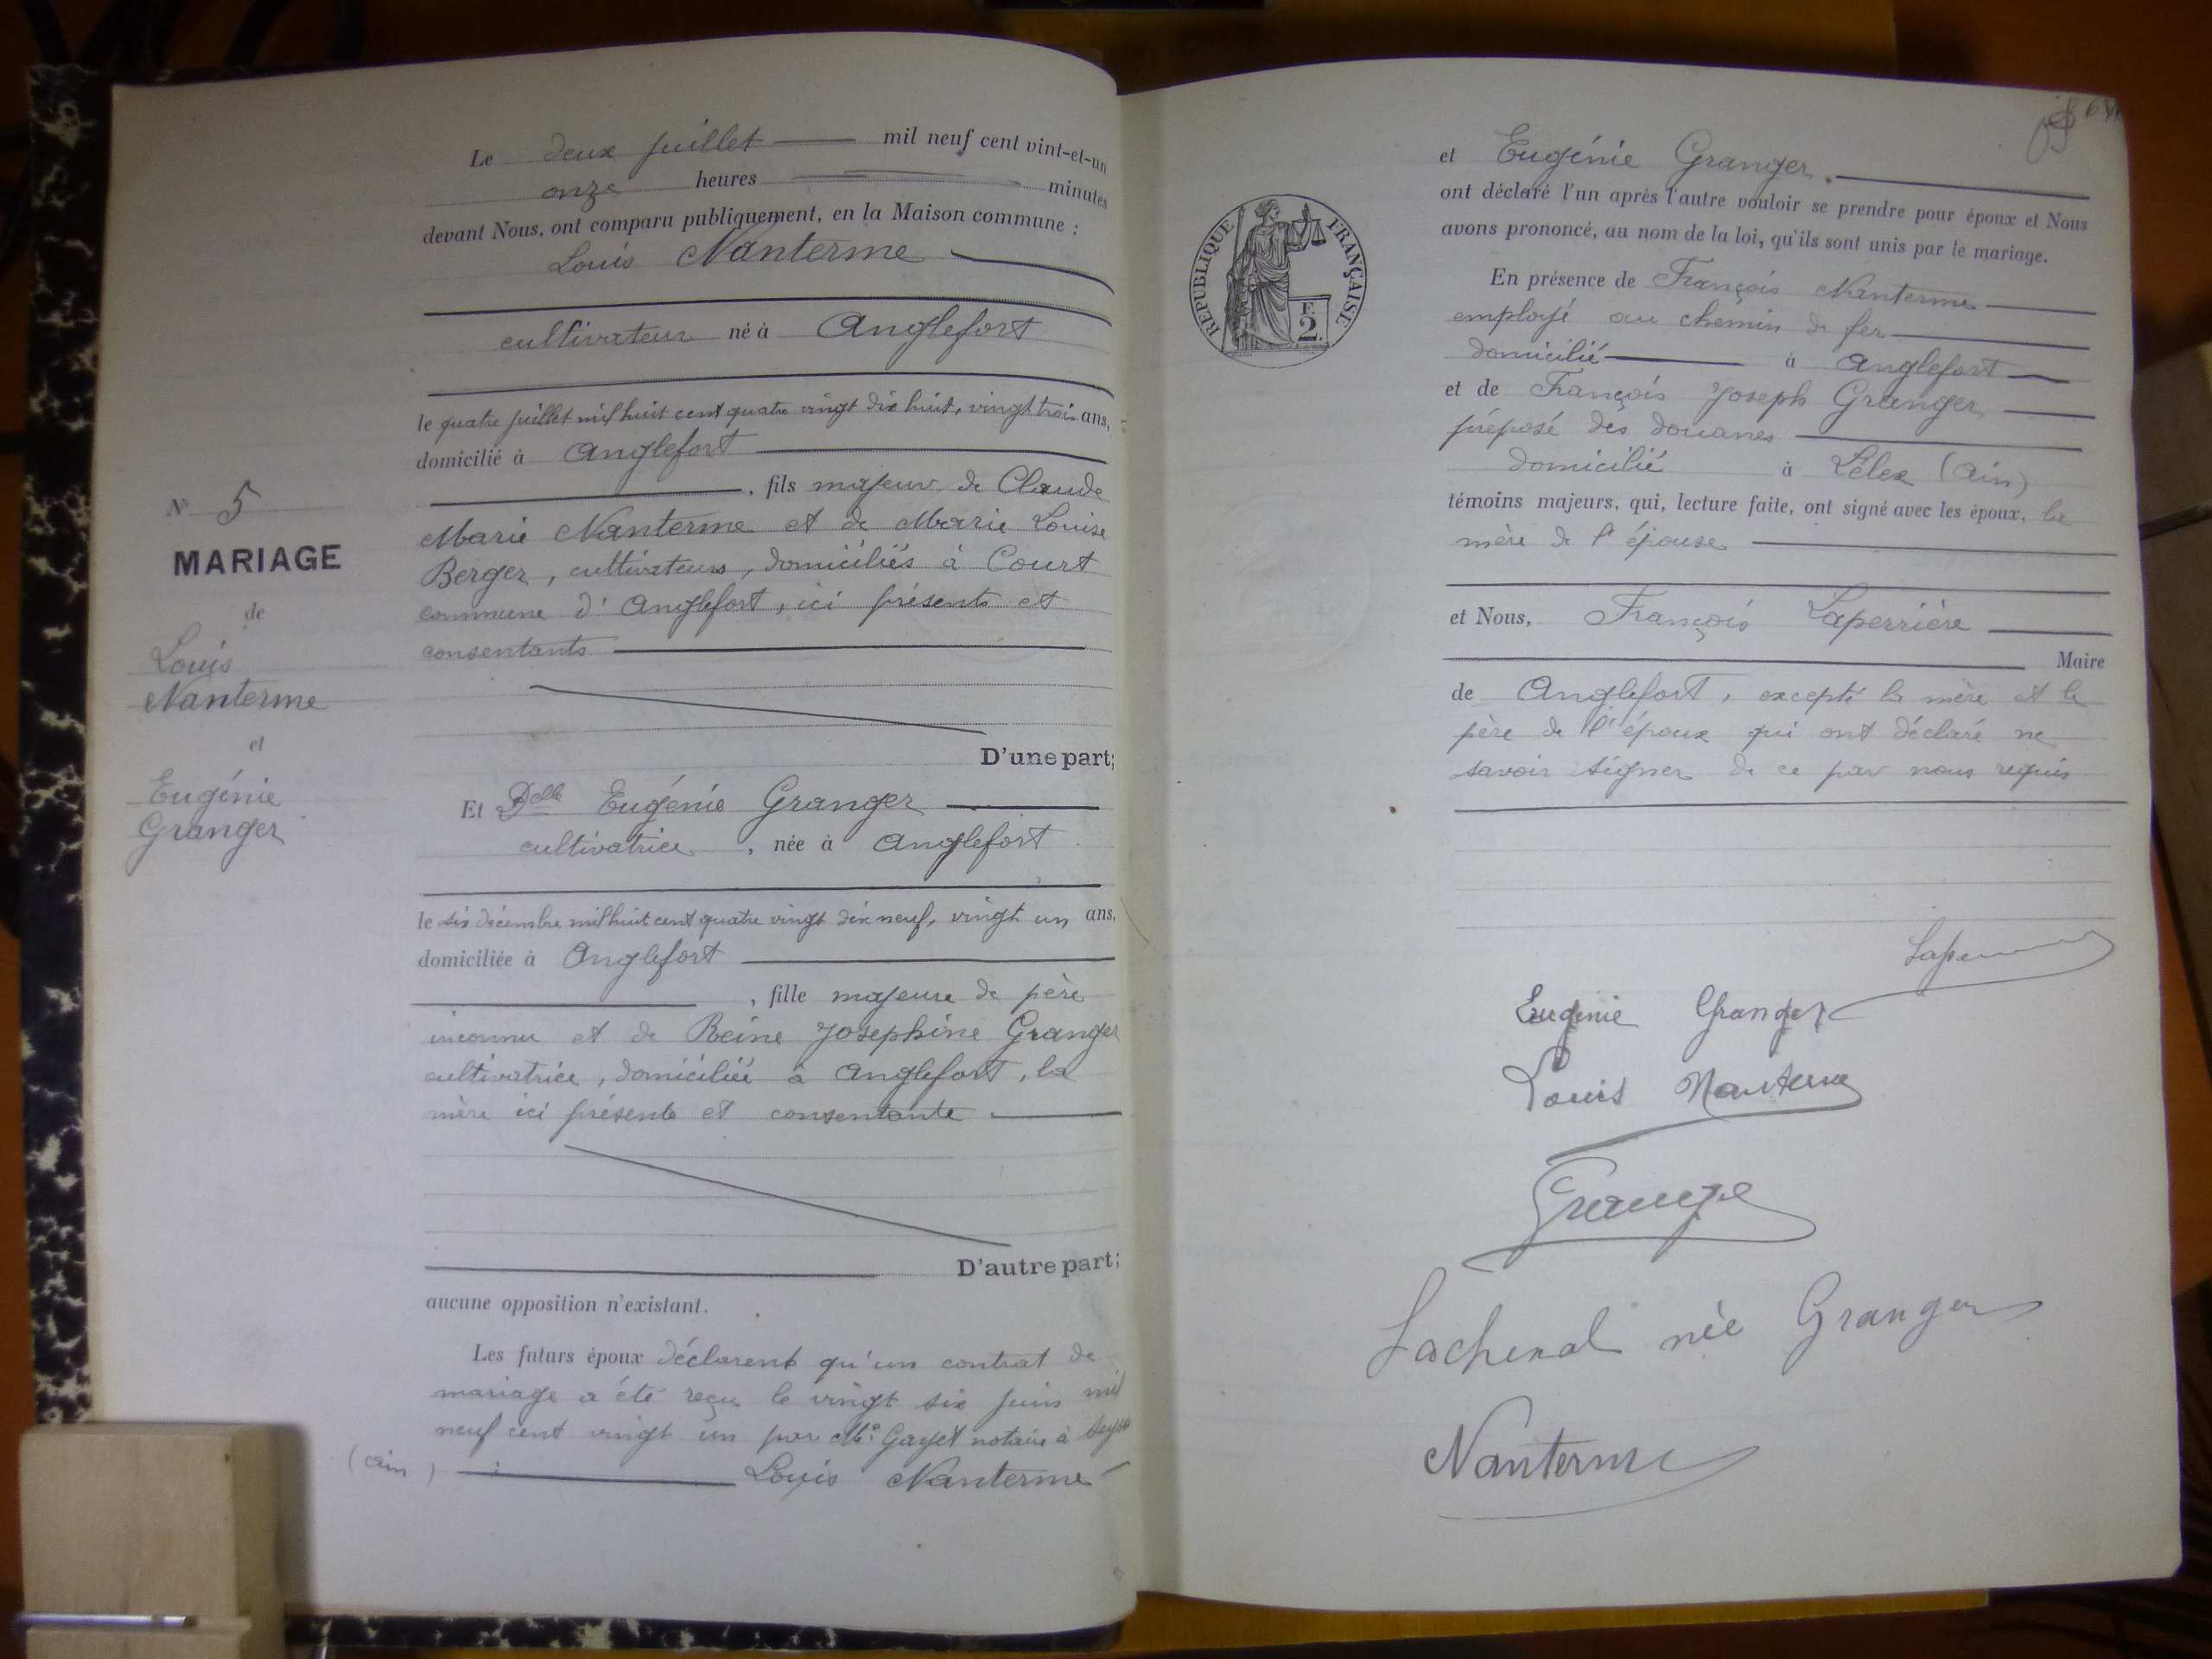 Le deux juillet mil neuf cent vint-et-un
onze heures minutes
devant Nous, ont comparu publiquement, en la Maison commune :
Louis Nanterme
cultivateur né à Anglefort
le quatre juillet mil huit cent quatre vingt dix huit, vingt trois ans,
domicilié à Anglefort
, fils majeur de Claude
Marie Nanterme et de Marie Louise
Berger, cultivateurs, domiciliés à Court
commune d'Anglefort, ici présents et
consentants
D'une part;
N° 5
MARIAGE
de
Louis
Nanterme
et
Eugénie
Granger
Et Delle Eugénie Granger
cultivatrice, née à Anglefort
le six décembre mil huit cent quatre vingt dix neuf, vingt un ans,
domiciliée à Anglefort
, fille majeure de père
inconnu et de Reine Josephine Granger
cultivatrice, domiciliée à Anglefort, la
mère ici présente et consentante
D'autre part;
aucune opposition n'existant.
Les futurs époux déclarent qu'un contrat de
mariage a été reçu le vingt six juin mil
neuf cent vingt un par Me Gayet notaire à
(Ain) Louis Nanterme
et Eugénie Granger.
ont déclaré l'un après l'autre vouloir se prendre pour époux et Nous
avons prononcé, au nom de la loi, qu'ils sont unis par le mariage.
REPUBLIQUE FRANÇAISE
F.
2.
En présence de François Nanterme
employé au chemin de fer
domicilié à Anglefort
et de François Joseph Granger
préposé des douanes
domicilié à Lélex (Ain)
témoins majeurs, qui, lecture faite, ont signé avec les époux, la
mère de l'épouse
et Nous, François Laperrière
Maire
de Anglefort, excepté la mère et le
père de l'époux qui ont déclaré ne
savoir signer de ce par nous requis
Eugénie Granger
Louis Nanterme
Lachenal née Granger
Nanterme